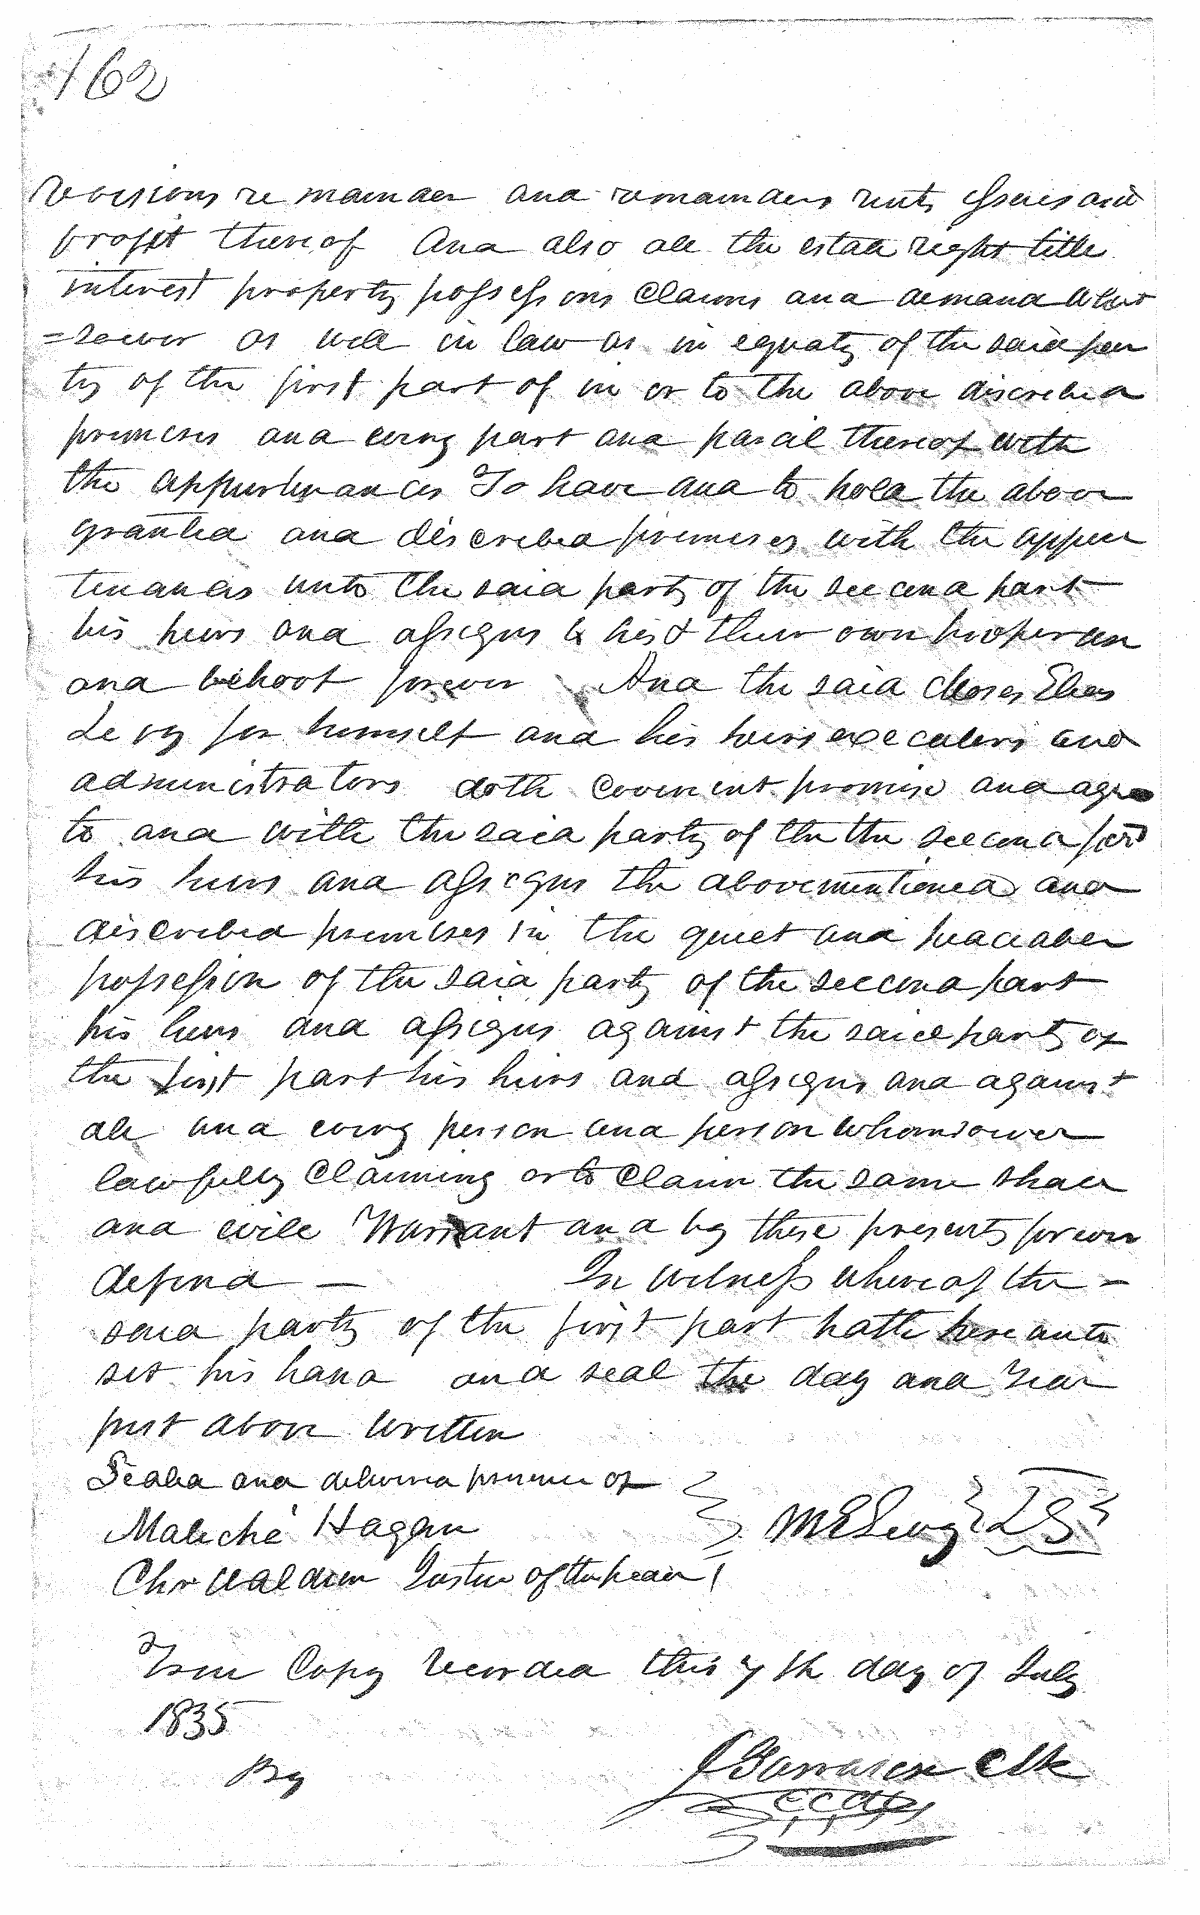 162
revisions remainder and remainders rents issues and
profit thereof And also all the estate right title
interest property possessions claims and demand what
=soever as well in law as in equaty of the said par
ty of the first part of in or to the above discribed
premises and every part and parcil thereof with
the appurtenances To have and to hold the above
granted and discribed premises with the appur
tenances unto the said party of the second part
his heirs and assigns to his & their own proper use
and behoof forever And the said Moses Elias
Levy for himself and his heirs executers and
administrators doth covenent promise and agree
to and with the said party of the the second part
his heirs and assigns the abovementioned and
discribed premises in the quiet and peaceaber
possession of the said party of the second part
his heirs and assigns against the said party of
the first part his heirs and assigns and against
all and every person and person whomsoever
lawfully claiming or to claim the same shall
and will Warrant and by these presents forever
defend — In witness whereof the –
said party of the first part hath hereunto
set his hand and seal the day and Year
first above written
Seald and deliverd presence of
Maliche Hagan } M E Levy { L S }
Chr Waldron Justice of the peace
True Copy recorded this 7th day of July
1835
By Clk